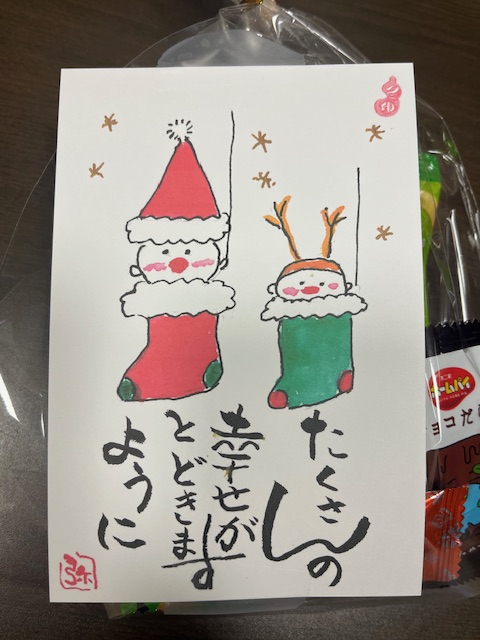 たくさんの
幸せが
とどきます
ように
弥
ームパイ
ョコだ